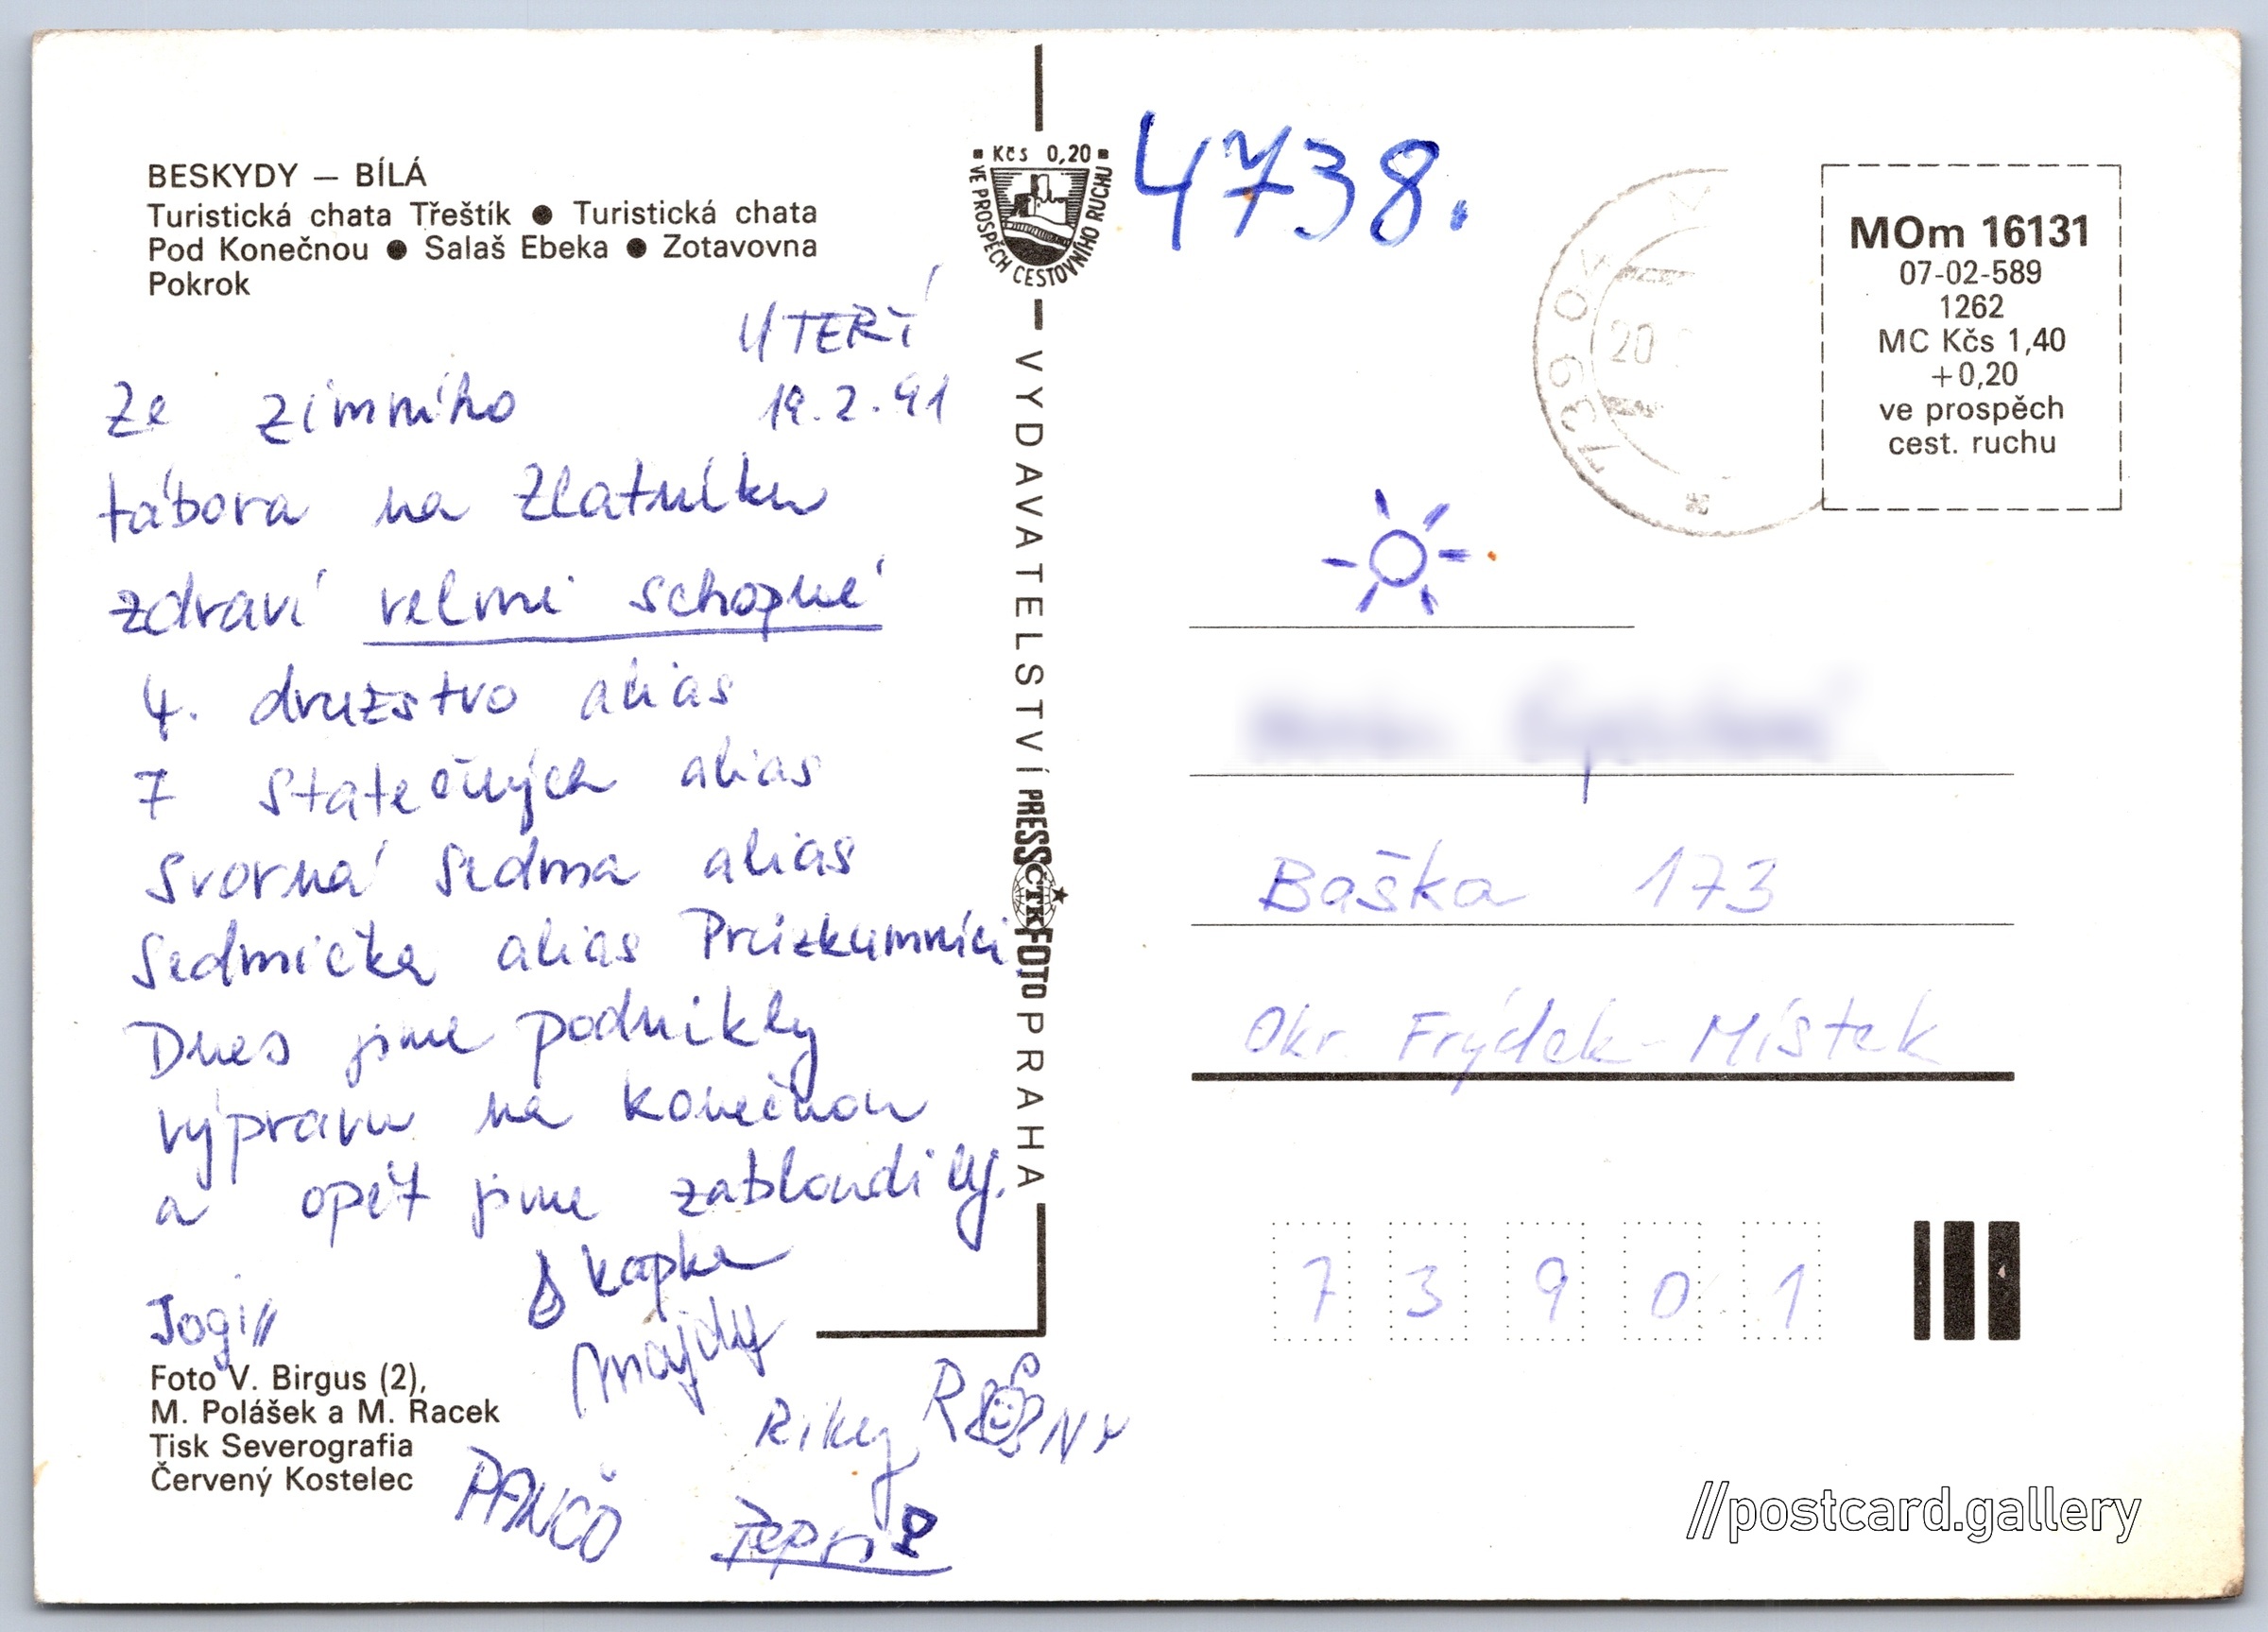 BESKYDY — BÍLÁ
Turistická chata Třeštík ● Turistická chata
Pod Konečnou ● Salaš Ebeka ● Zotavovna
Pokrok
ÚTERÝ
19.2.91
Ze zimního
tábora na Zlatníku
zdraví velmi schopné
4. družstvo alias
7 statečných alias
Svorná sedma alias
Sedmička alias Průzkumníci
Dnes jsme podnikly
výpravu na konečnou
a opět jsme zabloudily.
kapka
Jogi
majdy
Rikey
RONY
PANČO
Pepři
Foto V. Birgus (2),
M. Polášek a M. Racek
Tisk Severografia
Červený Kostelec
Kčs 0,20
VE PROSPĚCH CESTOVNÍHO RUCHU
VYDAVATELSTVÍ PRESSFOTO PRAHA
ČTK
4738.
739 01
20
MOm 16131
07-02-589
1262
MC Kčs 1,40
+0,20
ve prospěch
cest. ruchu
Baška 173
Okr. Frýdek-Místek
73901
//postcard.gallery